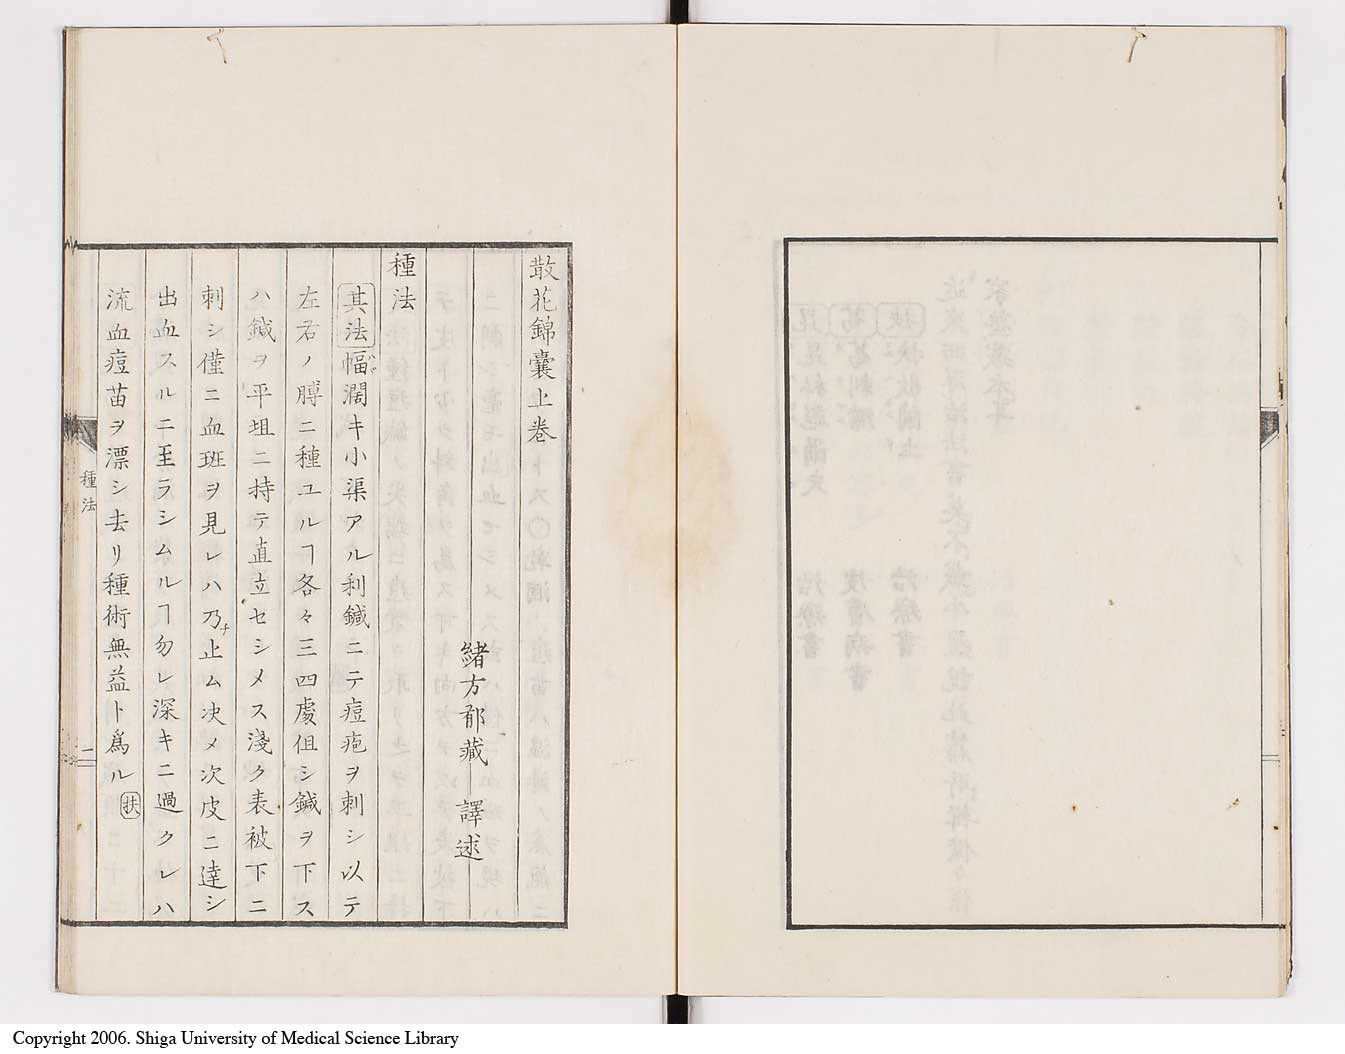 散花錦嚢上卷
緒方郁藏 譯述
種法
其法幅濶キ小渠アル利鍼ニテ痘疱ヲ刺シ以テ
左右ノ膊ニ種ユルヿ各々三四處但シ鍼ヲ下ス
ハ鍼ヲ平坦ニ持テ直立セシメス淺ク表被下ニ
刺シ僅ニ血斑ヲ見レハ乃チ止ム决メ次皮ニ達シ
出血スルニ至ラシムルヿ勿レ深キニ過クレハ
流血痘苗ヲ漂シ去リ種術無益ト爲ル 扶
種法
一
Copyright 2006. Shiga University of Medical Science Library